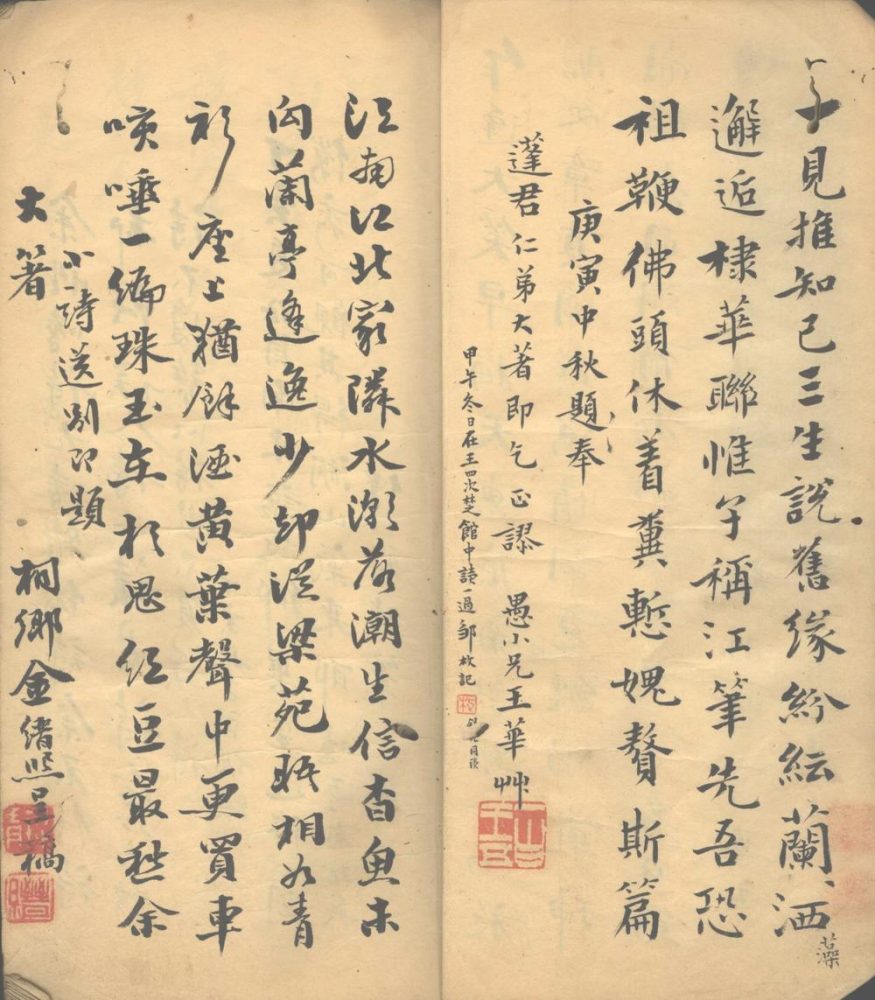 一見推知己三生說舊緣紛紜蘭洒藻
邂逅棣華聯惟子稱江筆先吾恐
祖鞭佛頭休着糞慙媿贅斯篇
庚寅中秋題奉
蓬君仁弟大著即乞正謬 愚小兄王華艸
甲午冬日在王四次楚館中讀一過鄒枚記
江南江北家隣水潮落潮生信杳魚未
向蘭亭逢逸少却從梁苑晤相如青
衫座上猶餘酒黃葉聲中更買車
咳唾一編珠玉在相思紅豆最愁余
小詩送別即題
大著 桐鄉金緒熙呈稿